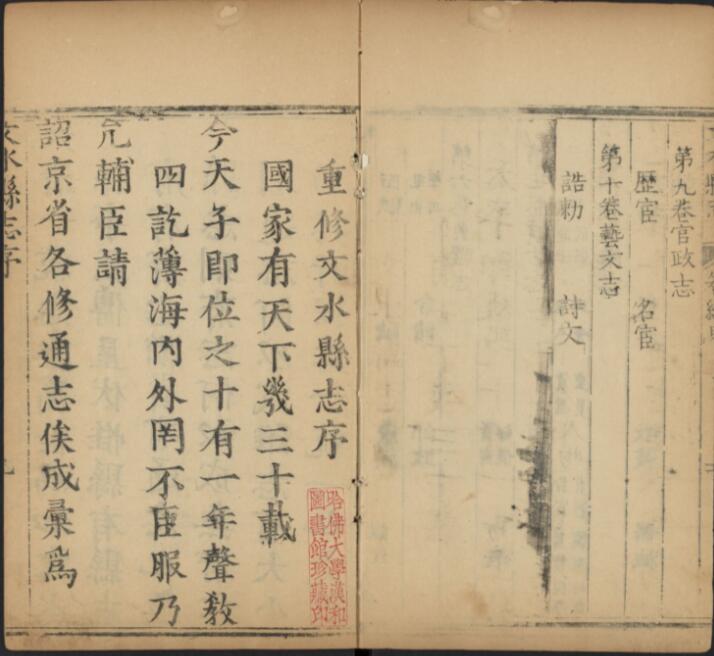 第九卷官政志
歷宦 名宦
第十卷藝文志
誥勅 詩文
重修文水縣志序
國家有天下幾三十載
今天子即位之十有一年聲教
四訖薄海內外罔不臣服乃
允輔臣請
詔京省各修通志俟成彙爲
文水縣志序
哈佛大學漢和
圖書館珍藏印